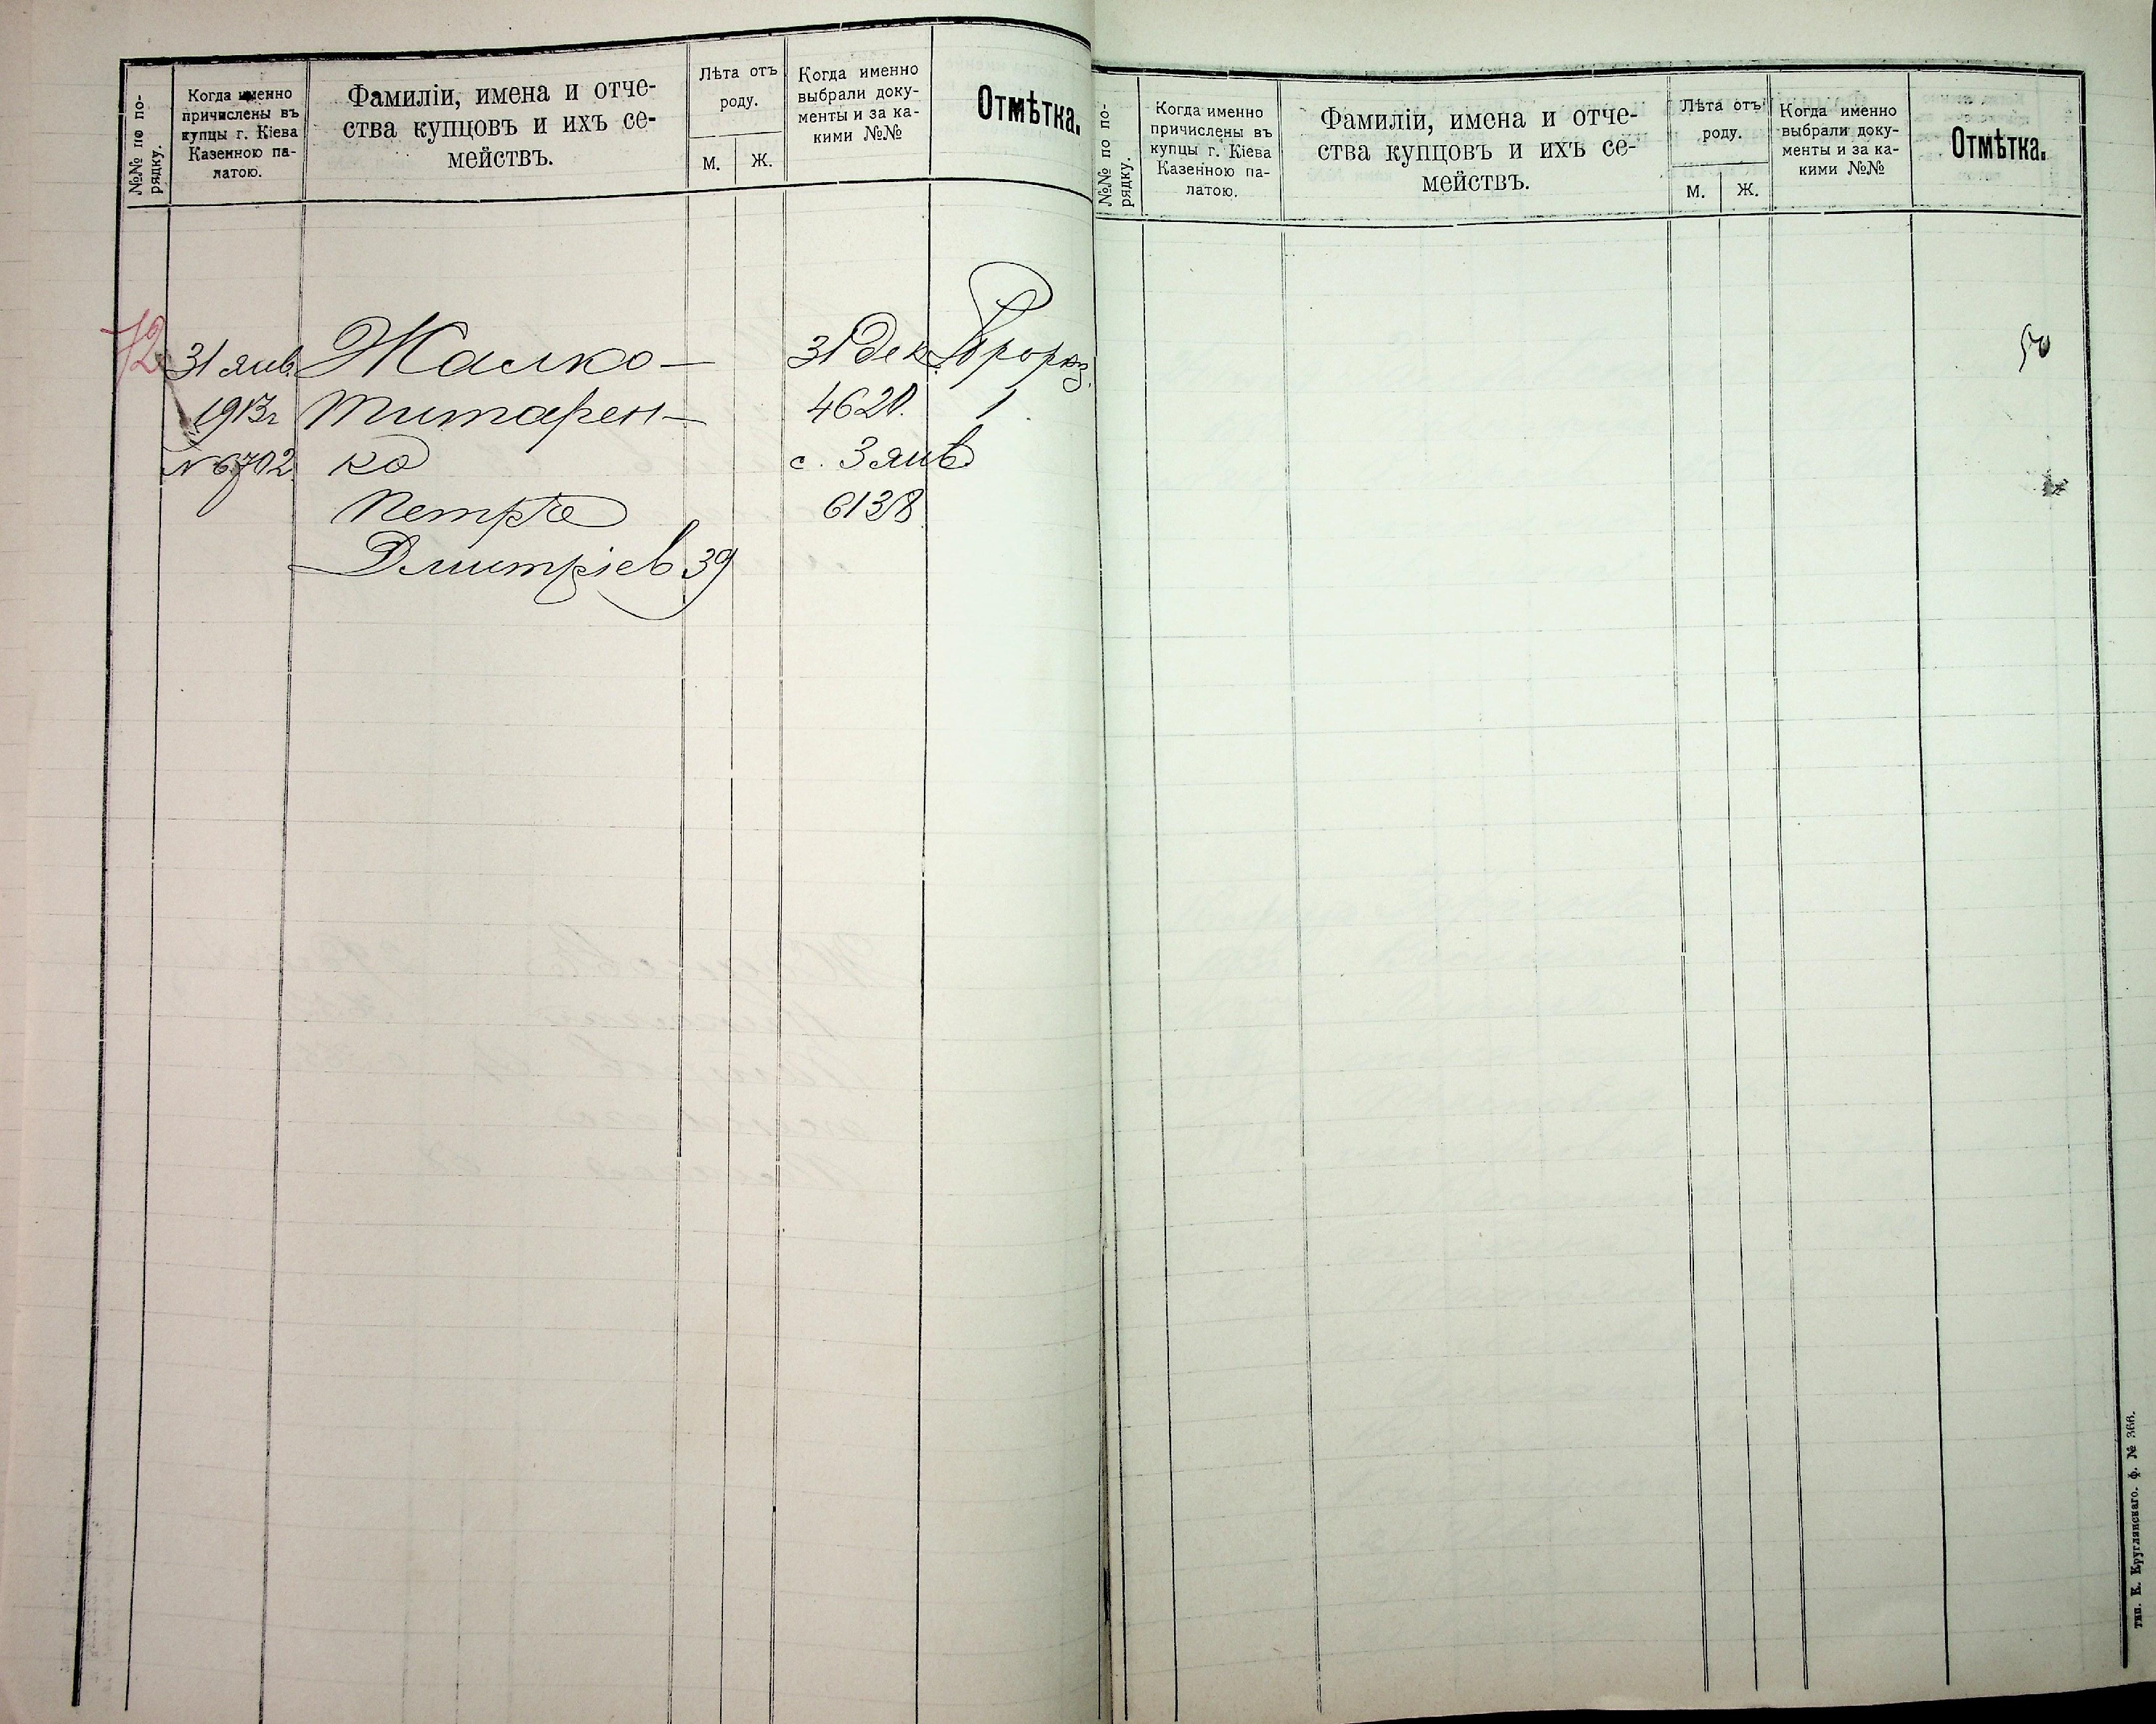 №№ по по-
рядку.
Когда именно
причислены въ
купцы г. Кіева
Казенною па-
латою.
Фамиліи, имена и отче-
ства купцовъ и ихъ се-
мействъ.
Лѣта отъ
роду.
м.
ж.
Когда именно
выбрали доку-
менты и за ка-
кими №№
Отмѣтка.
72
31 янв.
1913г
№ 6702
Жалко-
Титарен-
ко
Петръ
Дмитріев 39
31 дек.
4620.
с. 3 янв
6138
1
№№ по по-
рядку.
Когда именно
причислены въ
купцы г. Кіева
Казенною па-
латою.
Фамиліи, имена и отче-
ства купцовъ и ихъ се-
мействъ.
Лѣта отъ
роду.
м.
ж.
Когда именно
выбрали доку-
менты и за ка-
кими №№
Отмѣтка.
50
тип. К. Круглянскаго. ф. № 366.